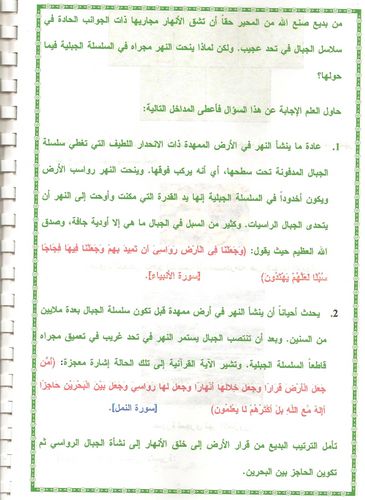 من بديع صنع الله من المحير حقاً أن تشق الأنهار مجاريها ذات الجوانب الحادة في
سلاسل الجبال في تحد عجيب. ولكن لماذا ينحت النهر مجراه في السلسلة الجبلية فيما
حولها؟
حاول العلم الإجابة عن هذا السؤال فأعطى المداخل التالية:
1. عادة ما ينشأ النهر في الأرض الممهدة ذات الانحدار اللطيف التي تغطي سلسلة
الجبال المدفونة تحت سطحها، أي أنه يركب فوقها. وينحت النهر رواسب الأرض
ويكون أخدوداً في السلسلة الجبلية إنها يد القدرة التي مكنت وأوحت إلى النهر أن
يتحدى الجبال الراسيات. وكثير من السبل في الجبال ما هي إلا أودية جافة، وصدق
الله العظيم حيث يقول: (وَجَعَلْنَا فِي الْأَرْضِ رَوَاسِيَ أَن تَمِيدَ بِهِمْ وَجَعَلْنَا فِيهَا فِجَاجًا
سُبُلًا لَعَلَّهُمْ يَهْتَدُونَ) [سورة الأنبياء].
2. يحدث أحياناً أن ينشأ النهر في أرض ممهدة قبل تكون سلسلة الجبال بعدة ملايين
من السنين. وبعد أن تنتصب الجبال يستمر النهر في تحد غريب في تعميق مجراه
قاطعاً السلسلة الجبلية. وتشير الآية القرآنية إلى تلك الحالة إشارة معجزة: (أَمَّن
جَعَلَ الْأَرْضَ قَرَارًا وَجَعَلَ خِلَالَهَا أَنْهَارًا وَجَعَلَ لَهَا رَوَاسِيَ وَجَعَلَ بَيْنَ الْبَحْرَيْنِ حَاجِزًا
أَإِلَهٌ مَّعَ اللَّهِ بَلْ أَكْثَرُهُمْ لَا يَعْلَمُونَ) [سورة النمل].
تأمل الترتيب البديع من قرار الأرض إلى خلق الأنهار إلى نشأة الجبال الرواسي ثم
تكوين الحاجز بين البحرين.